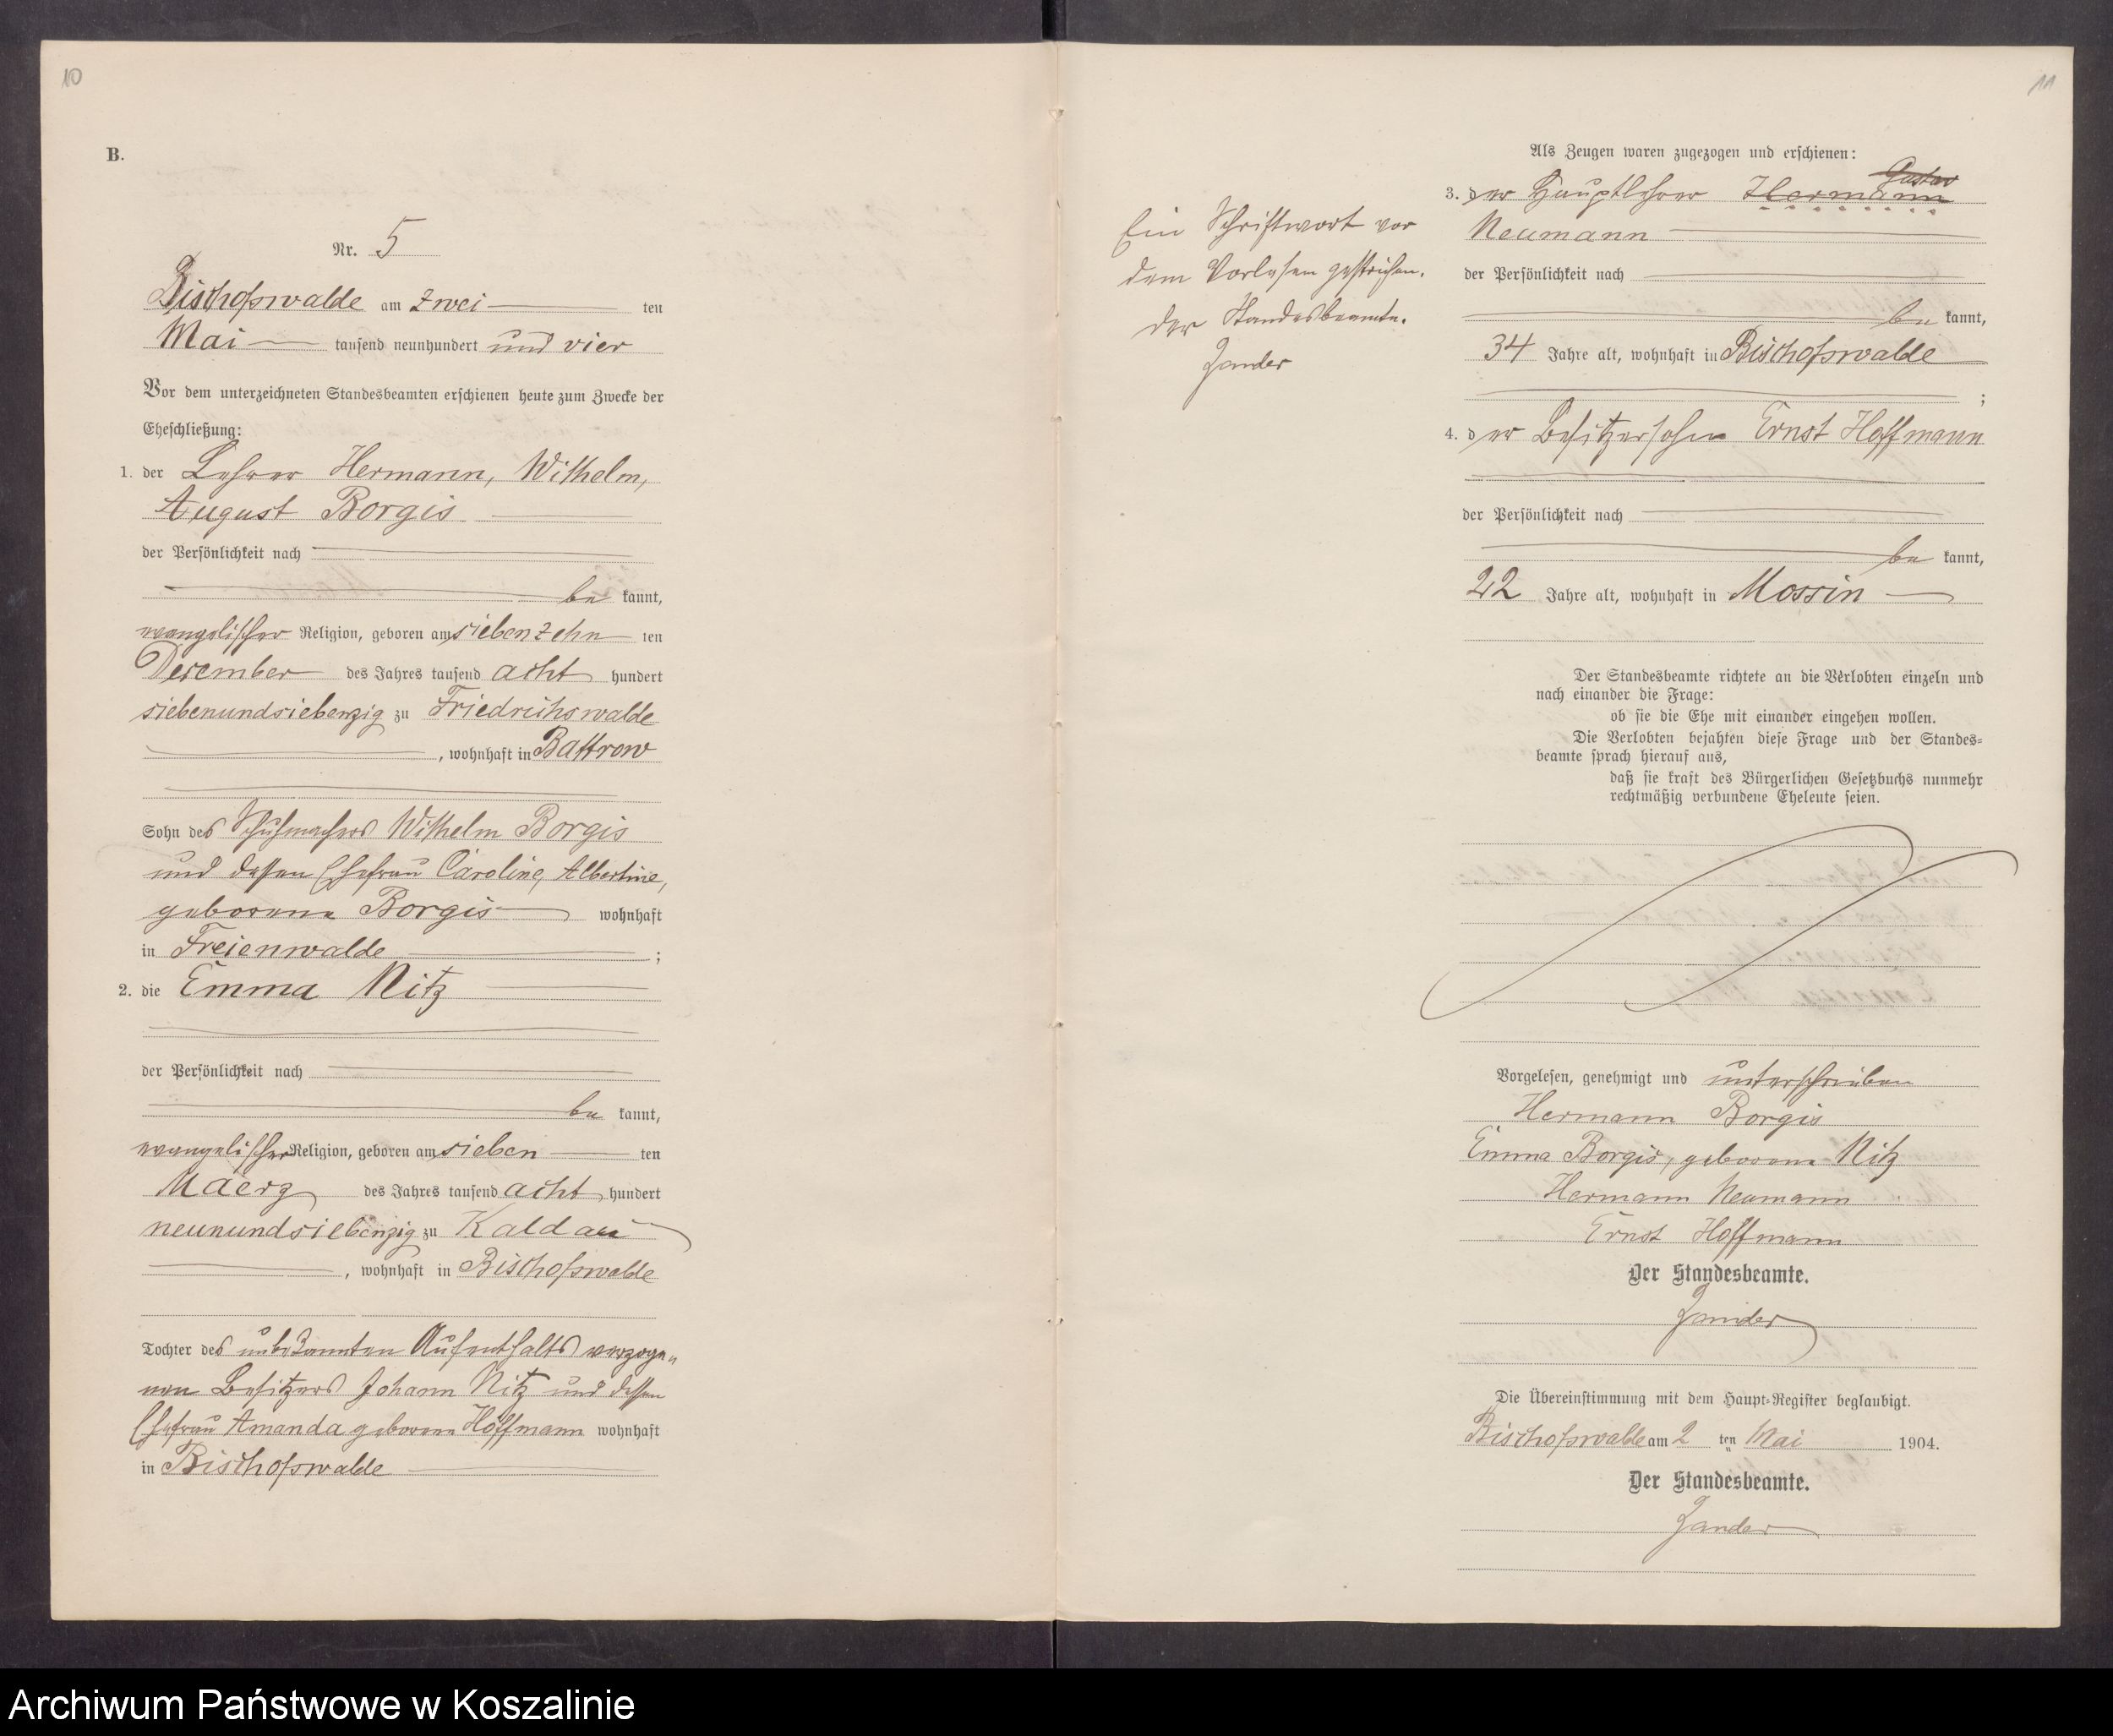 10
B.
Nr. 5
Bischofswalde am zwei ten
Mai tausend neunhundert und vier
Vor dem unterzeichneten Standesbeamten erschienen heute zum Zwecke der
Eheschließung:
1. der Lehrer Hermann, Wilhelm,
August Borgis
der Persönlichkeit nach
be kannt,
evangelischer Religion, geboren am siebenzehn ten
December des Jahres tausend acht hundert
siebenundsiebenzig zu Friedrichswalde
, wohnhaft in Battrow
Sohn des Schuhmachers Wilhelm Borgis
und dessen Ehefrau Caroline, Albertine,
geborene Borgis wohnhaft
in Freienwalde ;
2. die Emma Nitz
der Persönlichkeit nach
be kannt,
evangelischer Religion, geboren am sieben ten
Maerz des Jahres tausend acht hundert
neunundsiebenzig zu Kaldau
, wohnhaft in Bischofswalde
Tochter des unbekannten Aufenthalts verzoge„
nen Besitzers Johann Nitz und dessen
Ehefrau Amanda geborene Hoffmann wohnhaft
in Bischofswalde
11
Ein Schriftwort vor
dem Vorlesen gestrichen.
Der Standesbeamte.
Zander
Als Zeugen waren zugezogen und erschienen:
Gustav
3. der Hauptlehrer Hermann
Neumann
der Persönlichkeit nach
be kannt,
34 Jahre alt, wohnhaft in Bischofswalde
;
4. der Besitzersohn Ernst Hoffmann
der Persönlichkeit nach
be kannt,
22 Jahre alt, wohnhaft in Mossin
Der Standesbeamte richtete an die Verlobten einzeln und
nach einander die Frage:
ob sie die Ehe mit einander eingehen wollen.
Die Verlobten bejahten diese Frage und der Standes-
beamte sprach hierauf aus,
daß sie kraft des Bürgerlichen Gesetzbuchs nunmehr
rechtmäßig verbundene Eheleute seien.
Vorgelesen, genehmigt und unterschrieben
Hermann Borgis
Emma Borgis, geborene Nitz
Hermann Neumann
Ernst Hoffmann
Der Standesbeamte.
Zander
Die Übereinstimmung mit dem Haupt-Register beglaubigt.
Bischofswalde am 2 ten Mai 1904.
Der Standesbeamte.
Zander
Archiwum Państwowe w Koszalinie